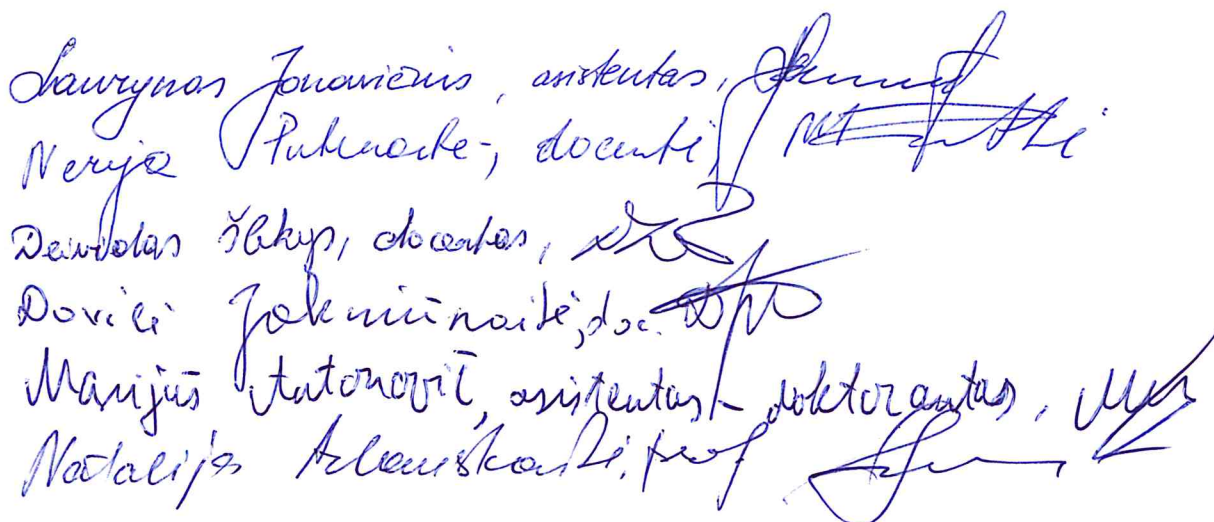 Laurynas Jonavičius, asistentas,
Nerija Putinaitė, docentė,
Deividas Šlekys, docentas,
Dovilė Jakniūnaitė, doc.
Marijuš Antonovič, asistentas - doktorantas,
Natalija Arlauskaitė, prof